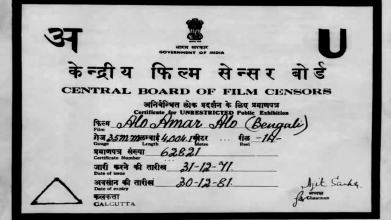 अ U
भारत सरकार
GOVERNMENT OF INDIA
केन्द्रीय फिल्म सेन्सर बोर्ड
CENTRAL BOARD OF FILM CENSORS
अनियंत्रित लोक प्रदर्शन के लिए प्रमाणपत्र
Certificate for UNRESTRICTED Public Exhibition
फिल्म Alo Amar Alo (Bengali)
Film
गेज 35mm लम्बाई 4,004.1 मीटर रील -14-
Gauge Length Metre Reel
प्रमाणपत्र संख्या 62821
Certificate Number
जारी करने की तारीख 31-12-71
Date of issue
अवसान की तारीख 30-12-81
Date of expiry
कलकत्ता अध्यक्ष
CALCUTTA for Chairman